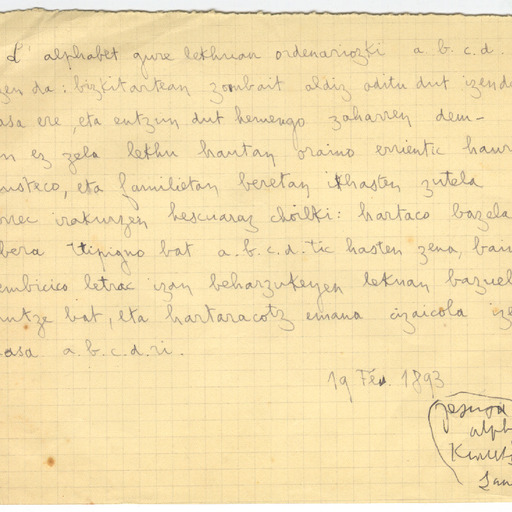 L' alphabet gure lekhuan ordenariozki a. b. c. d.
zen da: bizkitartean zombait aldiz aditu dut izend
asa ere, eta entzun dut hemengo zaharren dem-
n ez zela lekhu hautan oraino errientic haur
usteco, eta familietan beretan ikhasten zutela
orrec irakurzen hescuaraz choilki: hartaco bazela
bera ttipigno bat a. b. c. d. tic hasten zena, bain
embicico letrac izan beharzukeyen lekuan bazuel
untze bat, eta hartaracotz emana izaicola ize
asa a. b. c. d. ri.
19 Fév. 1893
alph